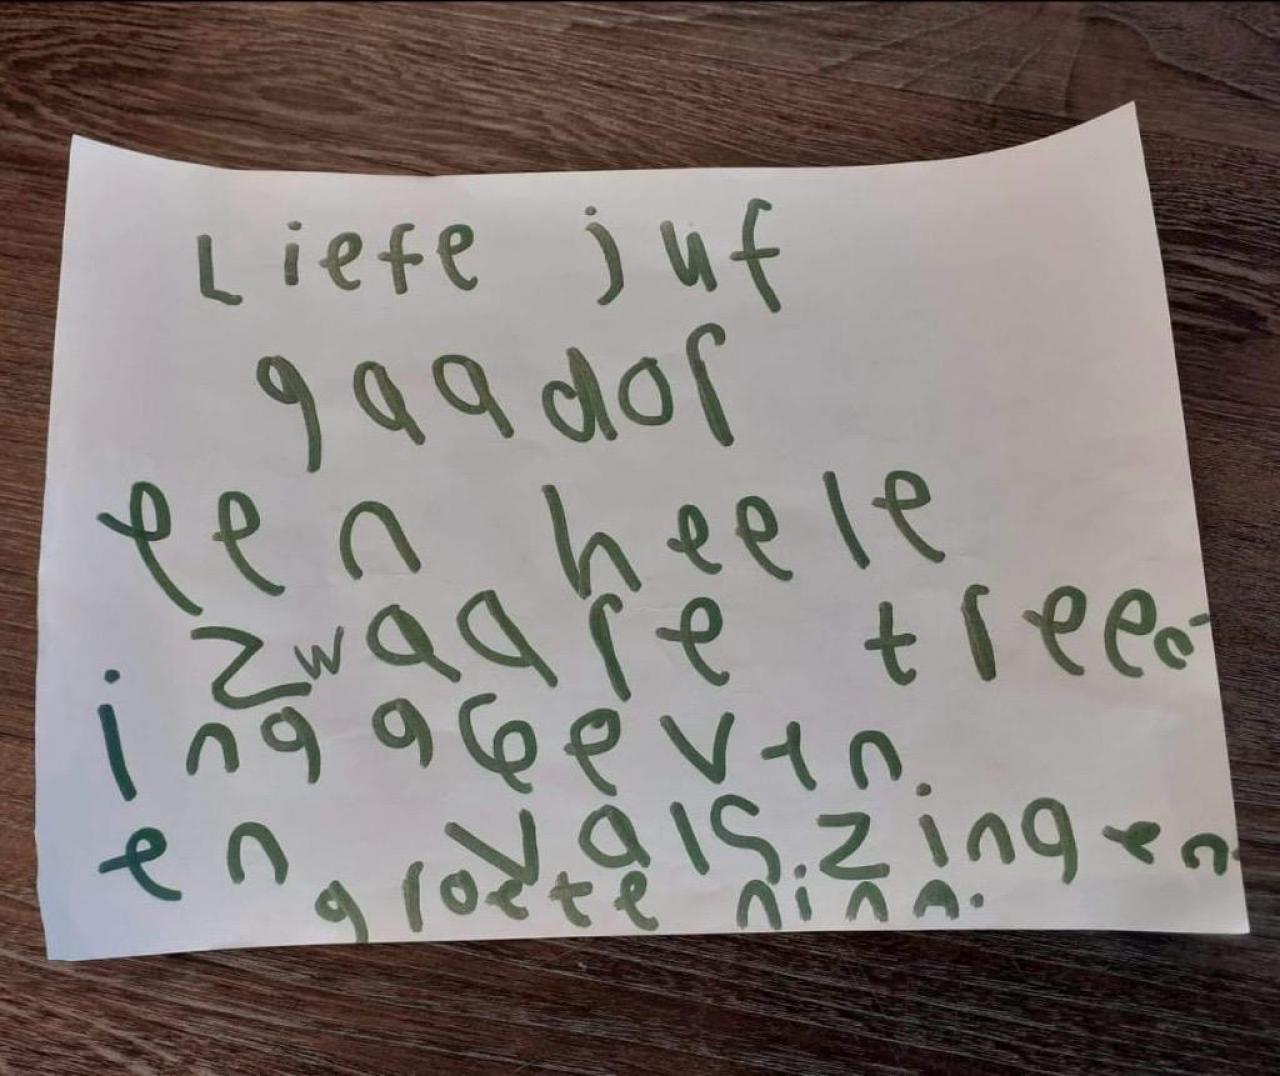 Liefe juf
gaador
een heele
zwaare treec
ing ageeven.
en vals.zingen.
groete nina.